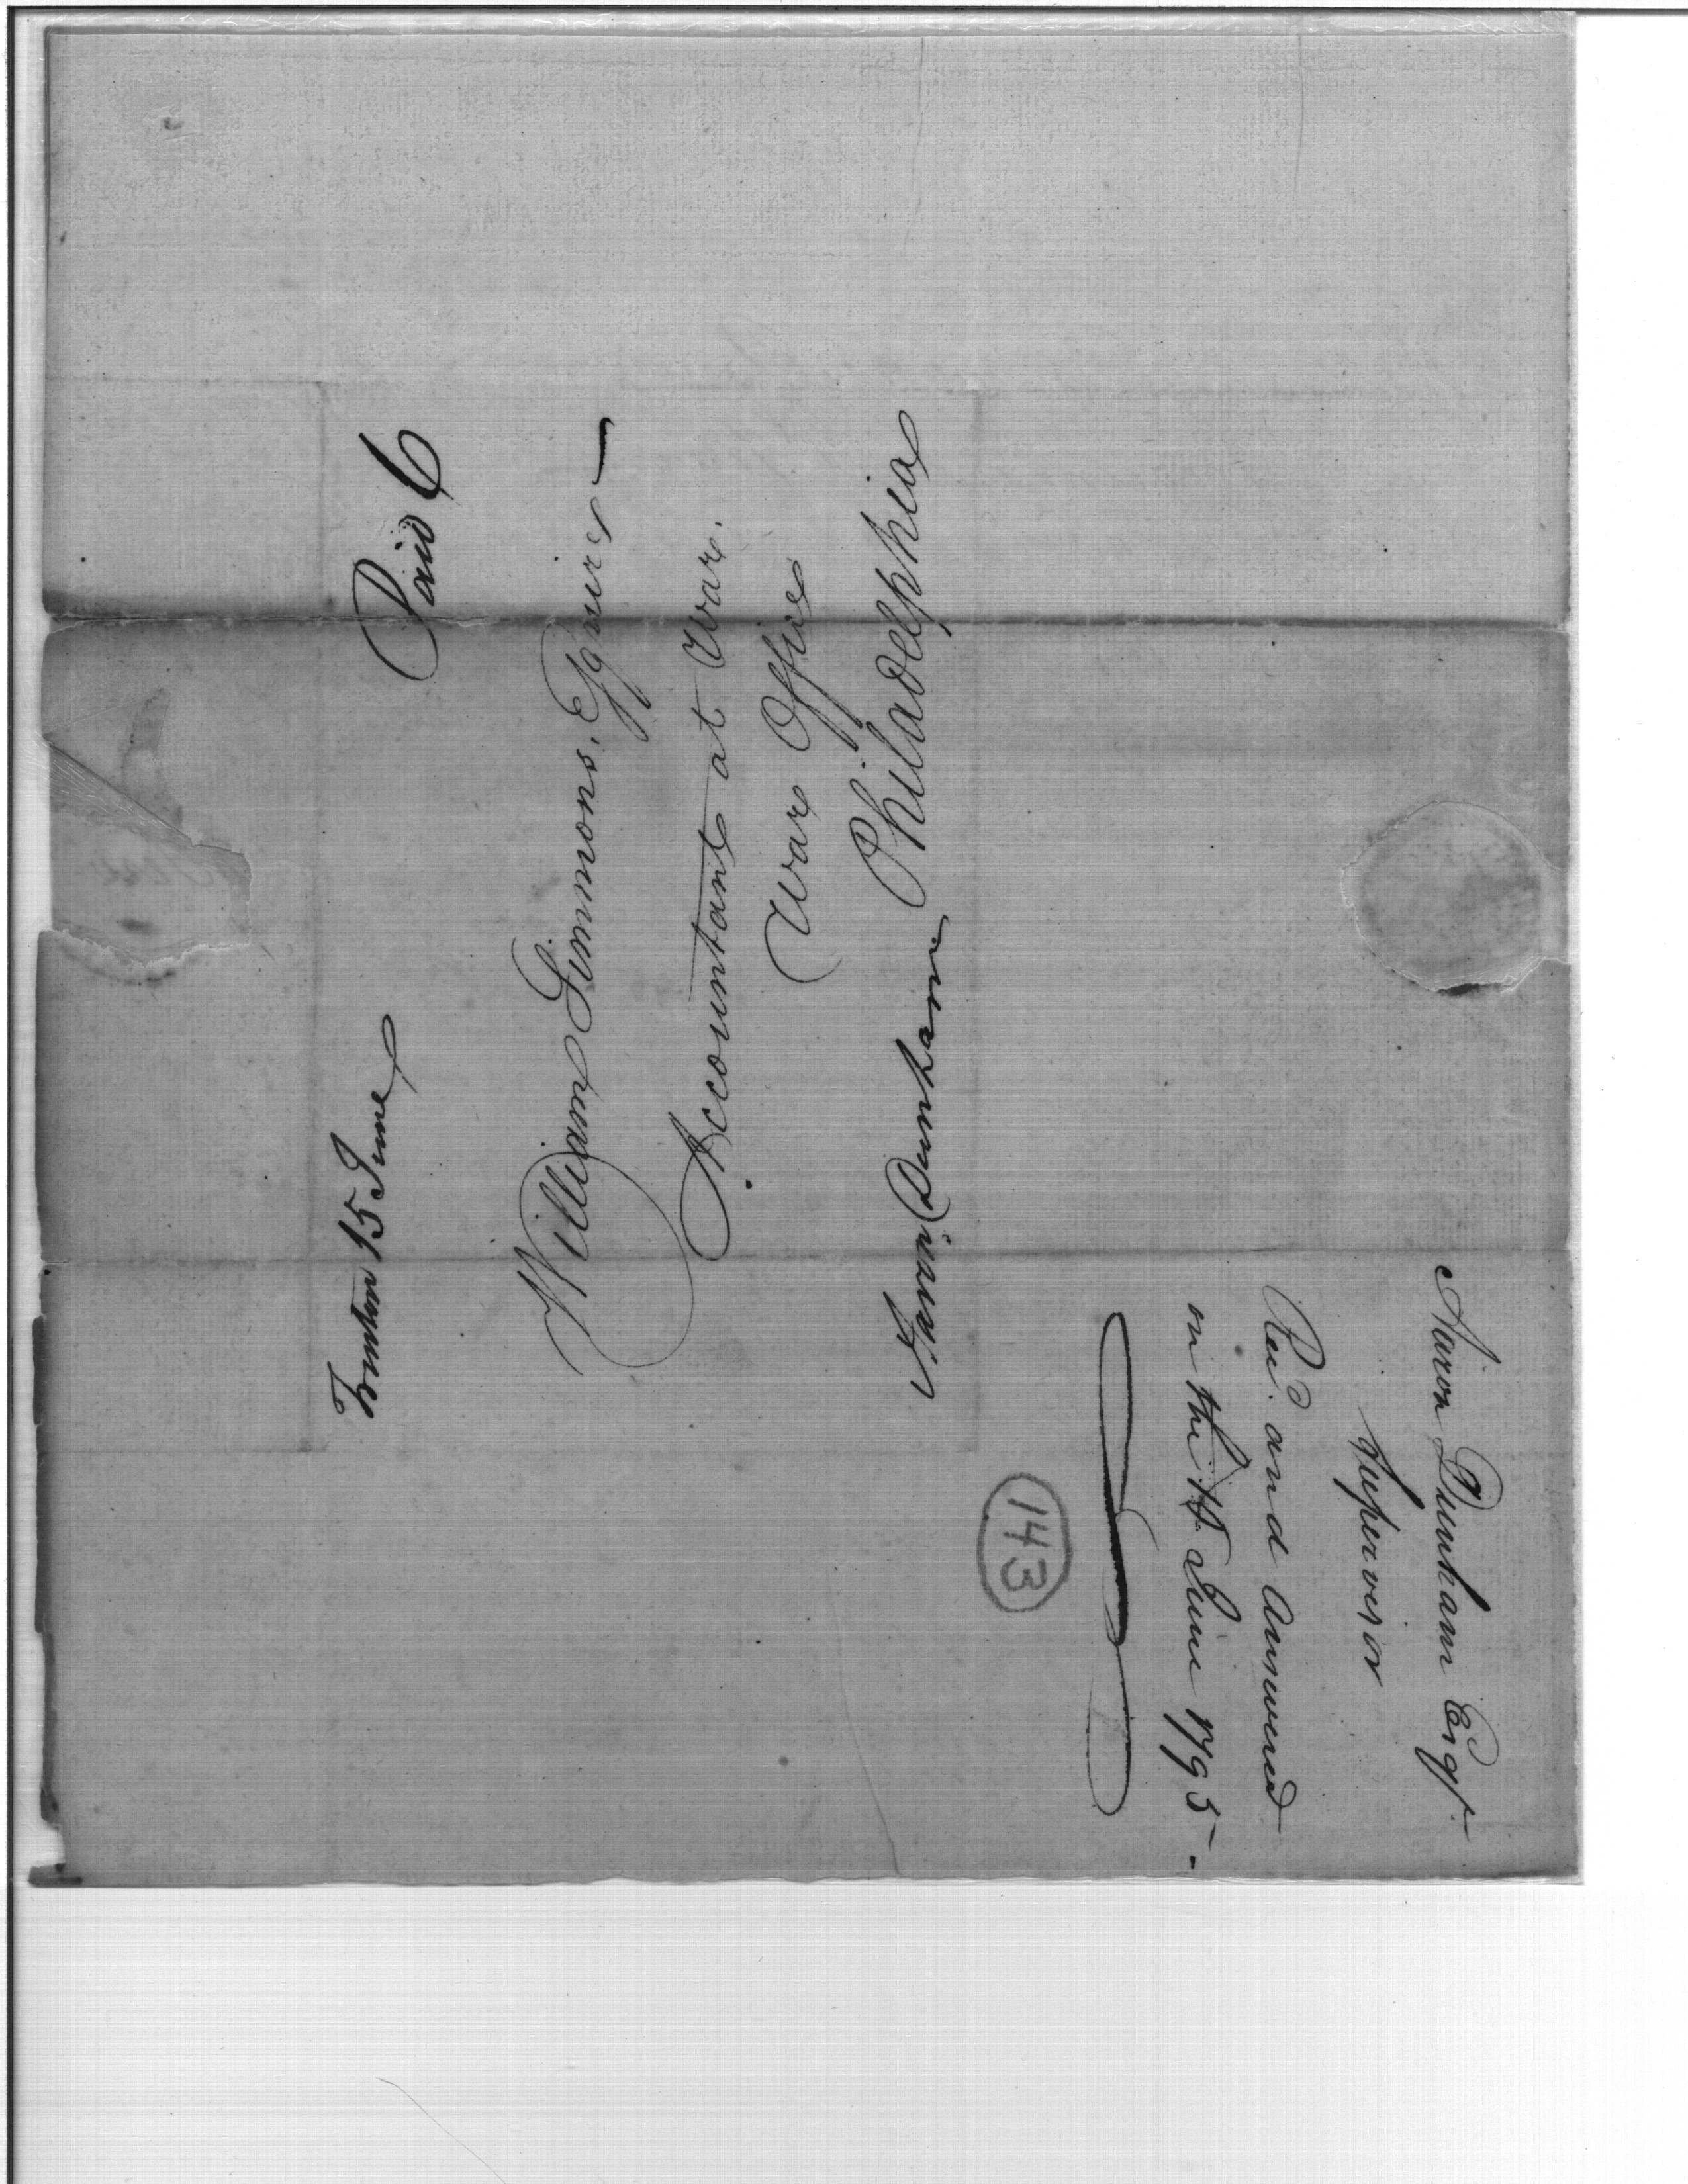 Trenton 15 June
Paid 6
William Simmons, Esquire —
Accountant at War.
War Office
Philadelphia
Aaron Dunham
Aaron Dunham Esqr.
Supervisor
Recd. and answered
on the June 1795 -
143